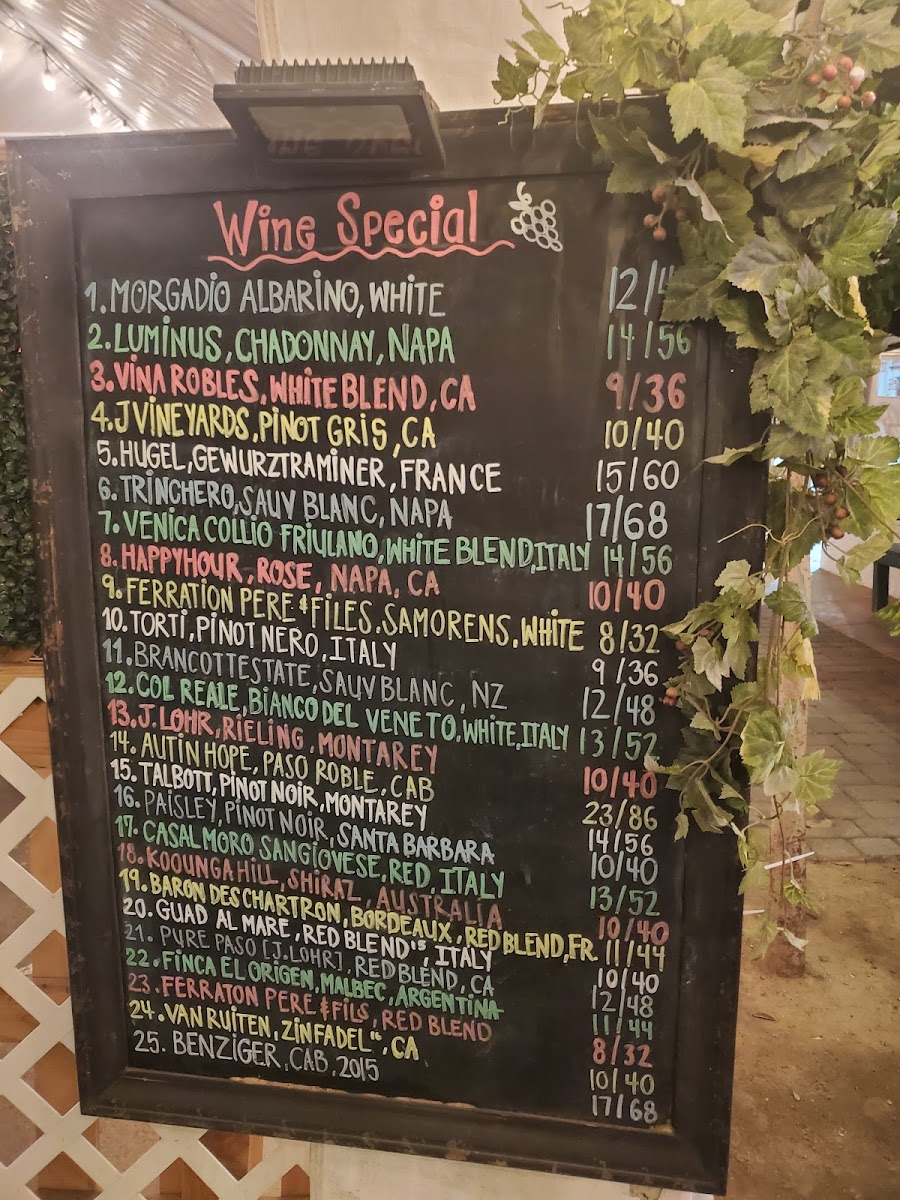 Wine Special
1. MORGADIO ALBARINO, WHITE 12/4
2. LUMINUS, CHADONNAY, NAPA 14/56
3. VINA ROBLES, WHITE BLEND, CA 9/36
4. J VINEYARDS, PINOT GRIS, CA 10/40
5. HUGEL, GEWURZTRAMINER, FRANCE 15/60
6. TRINCHERO, SAUV BLANC, NAPA 17/68
7. VENICA COLLIO FRIULANO, WHITE BLEND, ITALY 14/56
8. HAPPYHOUR, ROSE, NAPA, CA 10/40
9. FERRATION PERE & FILES, SAMORENS, WHITE 8/32
10. TORTI, PINOT NERO, ITALY 9/36
11. BRANCOTT ESTATE, SAUV BLANC, NZ 12/48
12. COL REALE, BIANCO DEL VENETO, WHITE, ITALY 13/52
13. J. LOHR, RIELING, MONTAREY 10/40
14. AUTIN HOPE, PASO ROBLE, CAB 23/86
15. TALBOTT, PINOT NOIR, MONTAREY 14/56
16. PAISLEY, PINOT NOIR, SANTA BARBARA 10/40
17. CASALMORO SANGIOVESE, RED, ITALY 13/52
18. KOOUNGA HILL, SHIRAZ, AUSTRALIA 10/40
19. BARON DES CHARTRON, BORDEAUX, RED BLEND, FR. 11/44
20. GUAD AL MARE, RED BLEND'15, ITALY 10/40
21. PURE PASO [J. LOHR], RED BLEND, CA 12/48
22. FINCA EL ORIGEN, MALBEC, ARGENTINA 11/44
23. FERRATON PERE & FILS, RED BLEND 8/32
24. VAN RUITEN, ZINFADEL, CA 10/40
25. BENZIGER, CAB, 2015 17/68